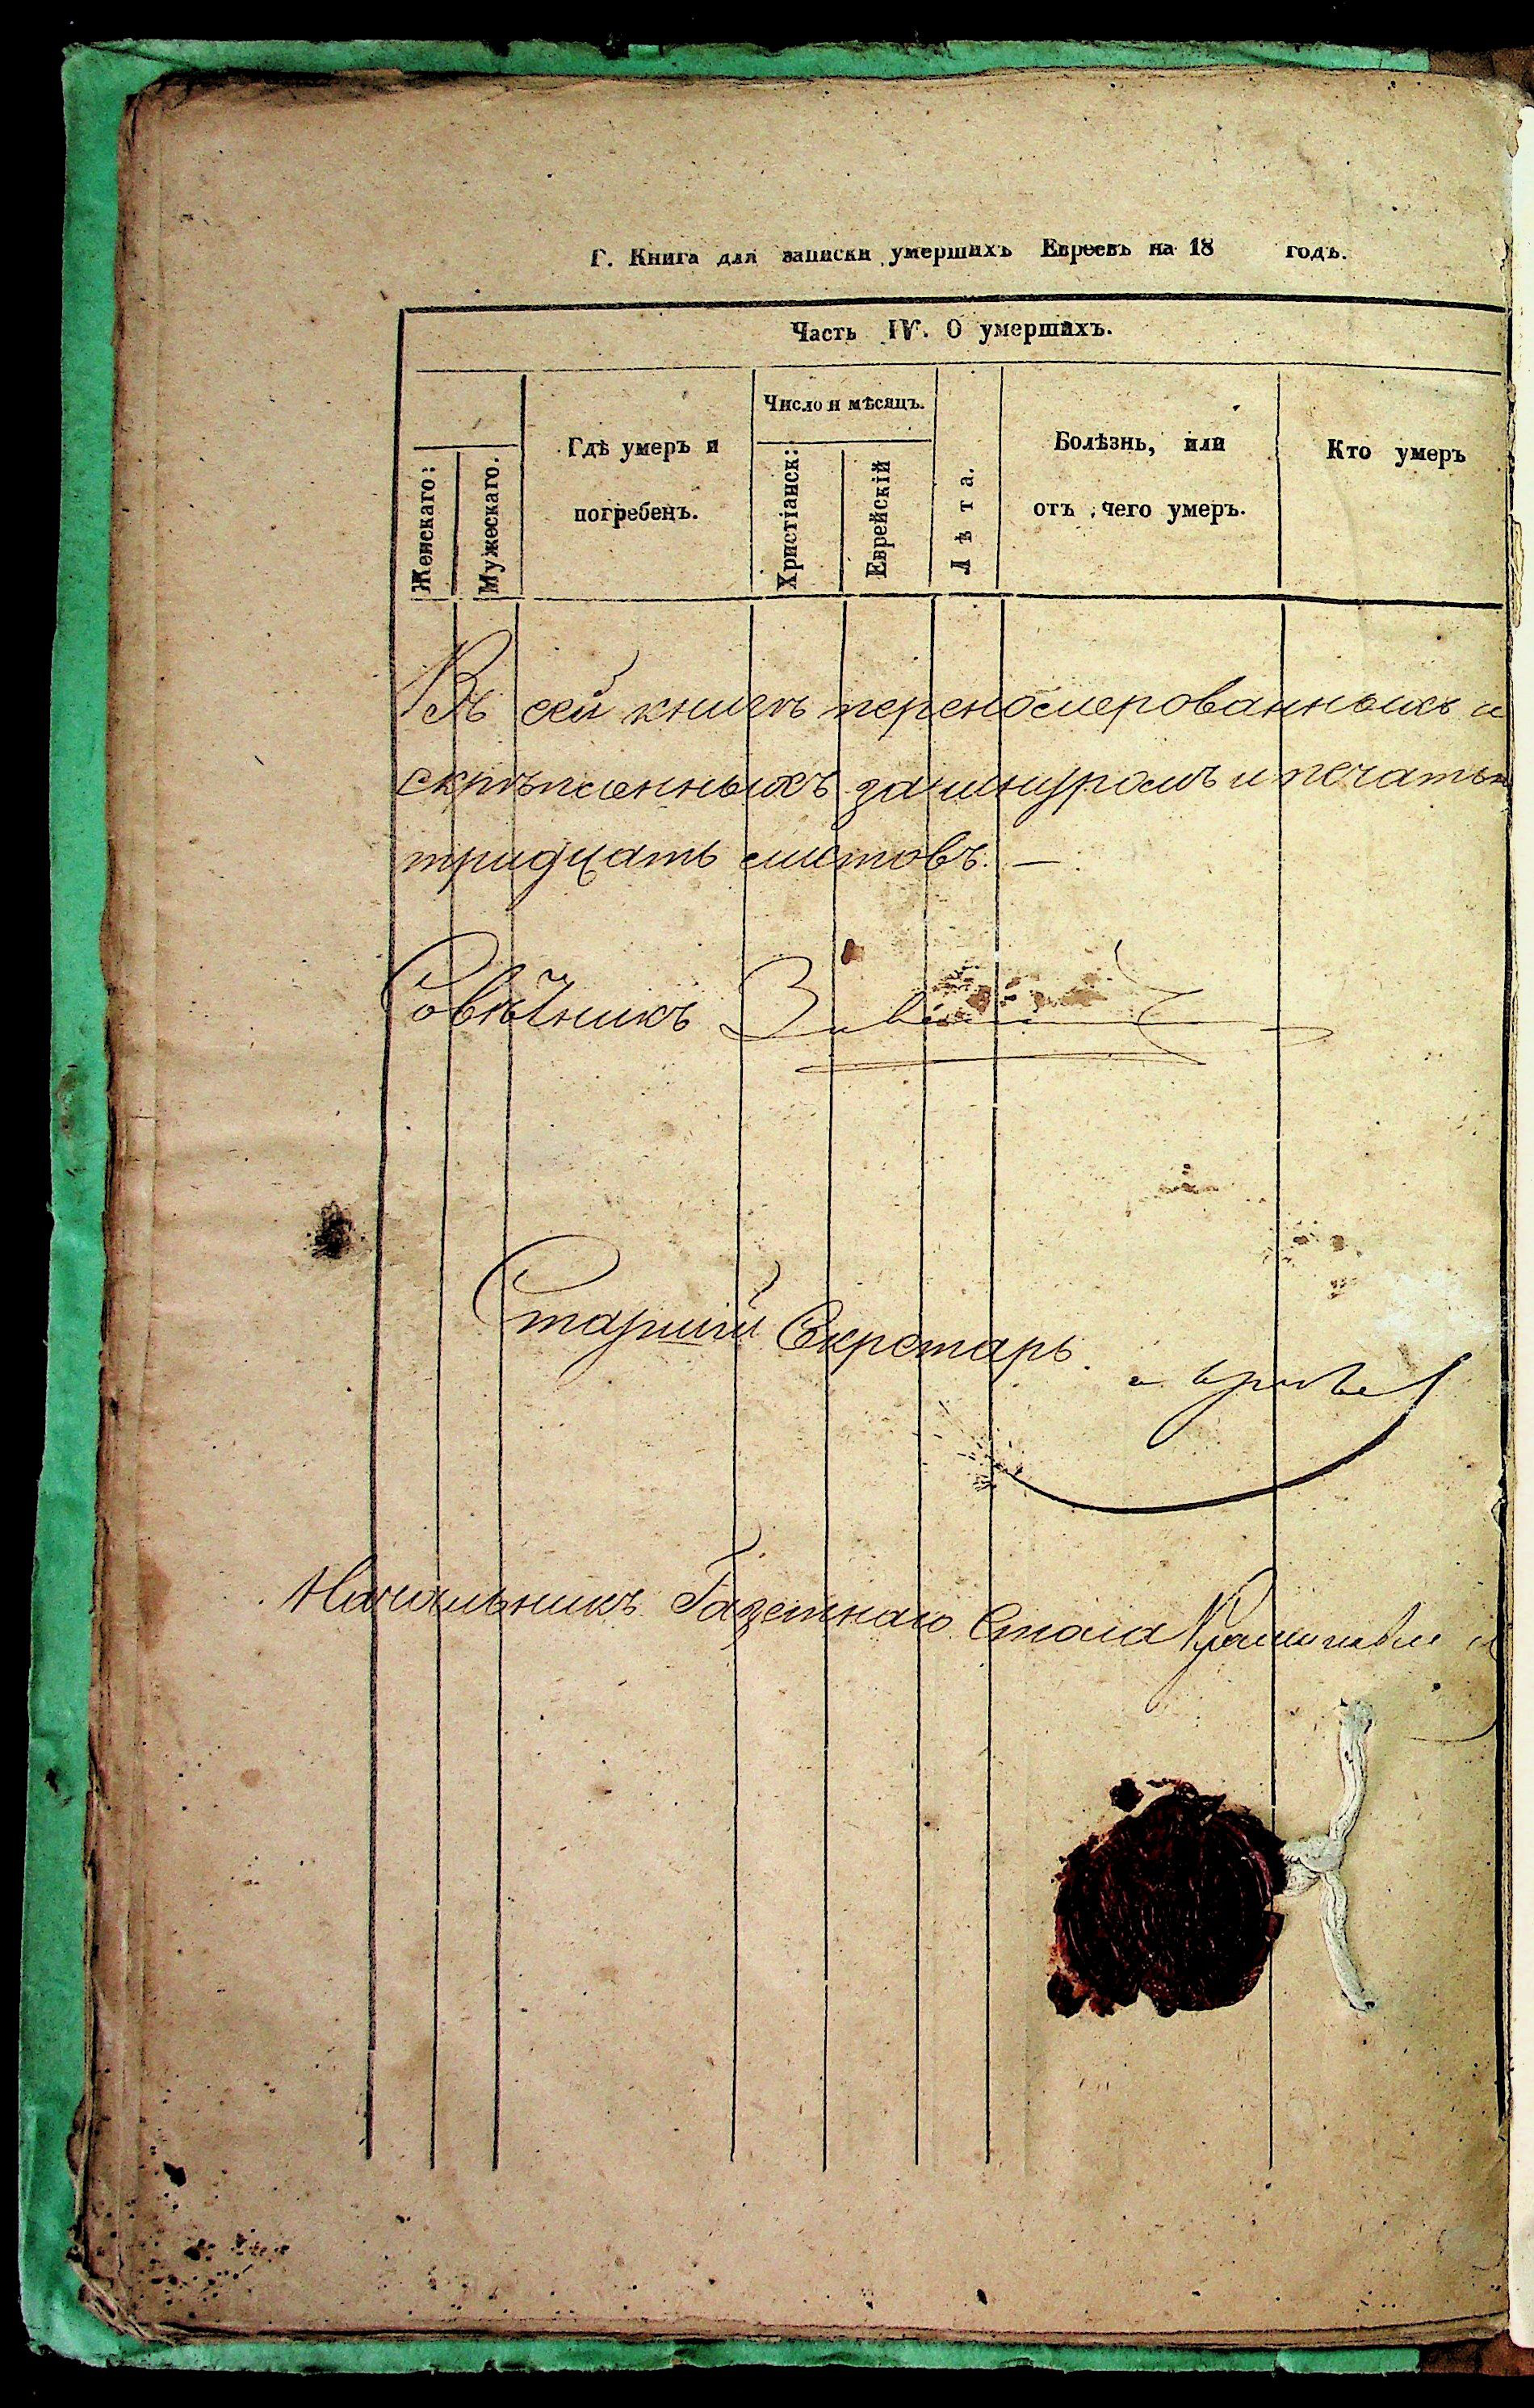 Г. Книга для записки умершихъ Евреевъ на 18 годъ.
Часть IV. О умершихъ.
Женскаго:
Мужескаго.
Гдѣ умеръ и
погребенъ.
Число и мѣсяцъ.
Христіанск:
Еврейскій
Лѣта.
Болѣзнь, или
отъ чего умеръ.
Кто умеръ
Въ сей книгѣ переномерованныхъ и
скрѣпленныхъ за шнуромъ и печатью
тридцать листовъ. —
Совѣтникъ
Старшій Секретарь
Начальникъ Газетнаго Стола